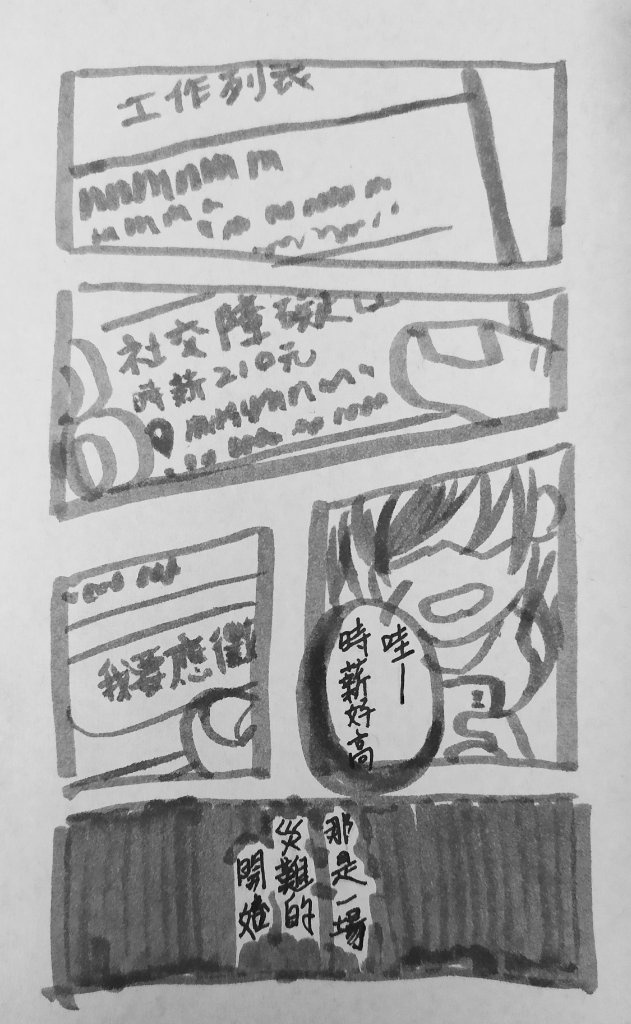 工作列表
社交障礙
時薪210元
我要應徵
哇ー
時薪好高
那是一場
災難的
開始